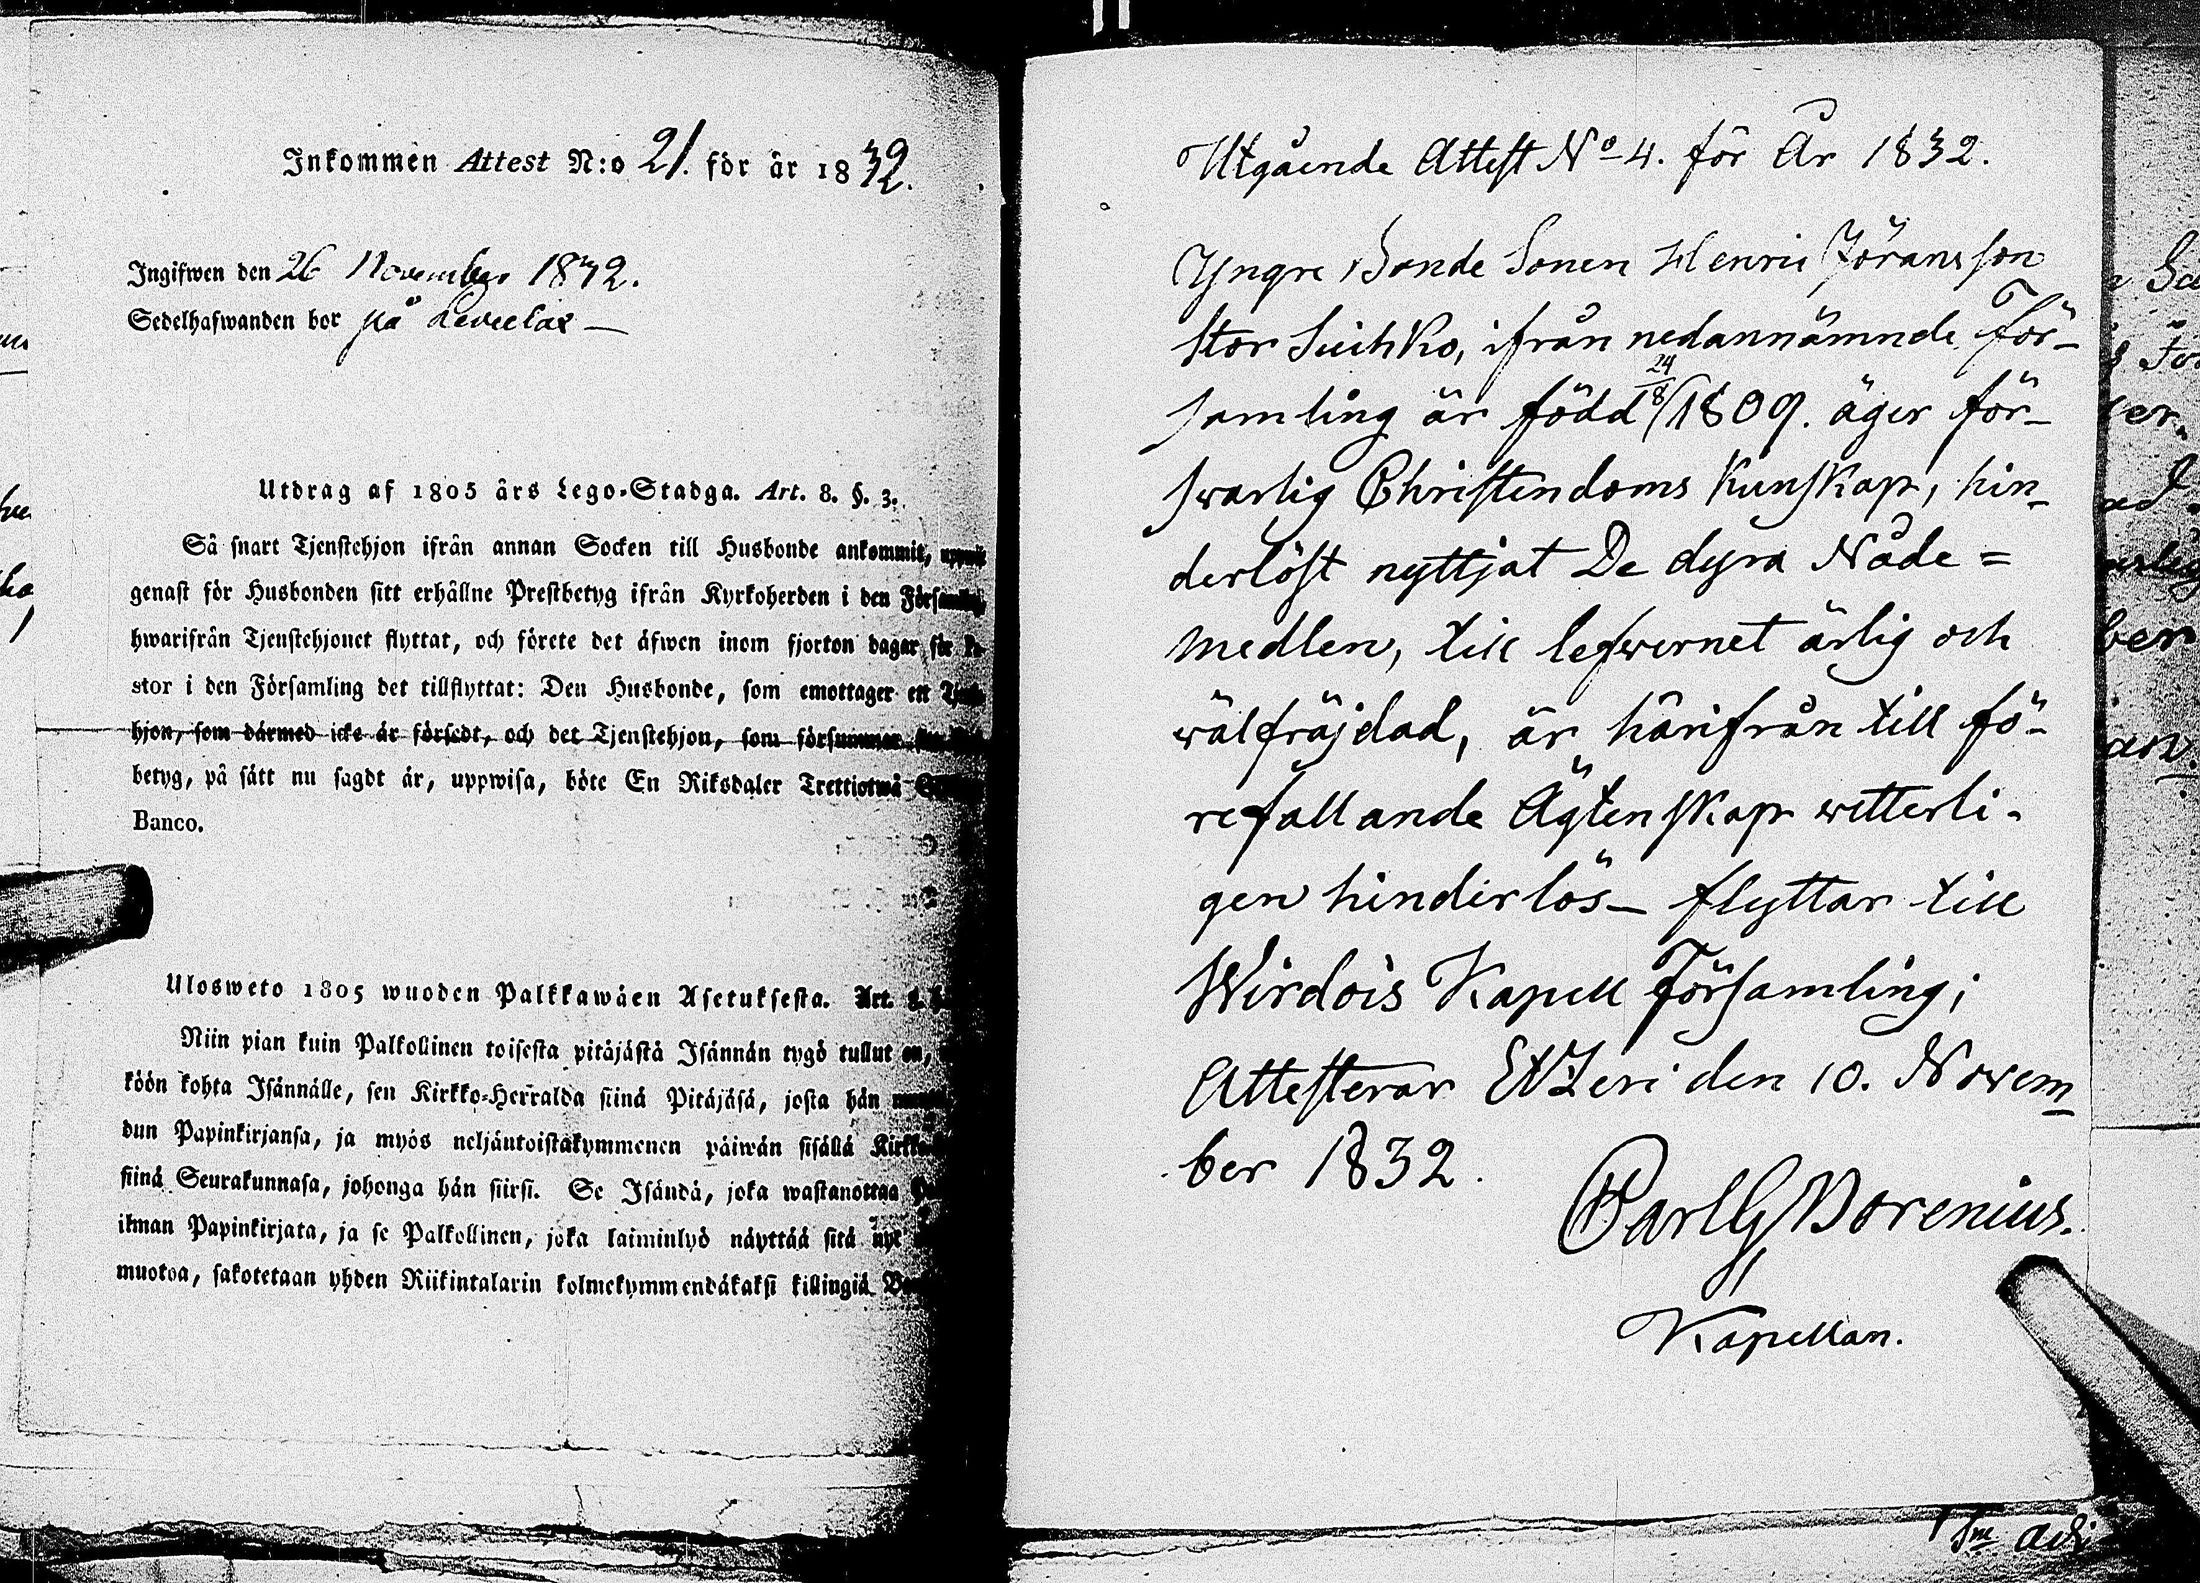 Inkommen Attest N:o 21. för år 1832.
Ingifwen den 26 November 1832.
Sedelhafwanden bor på
Utdrag af 1805 års Lego-Stadga. Art. 8. §. 3.
Så snart Tjenstehjon ifrån annan Socken till Husbonde ankommit,
genast för Husbonden sitt erhållne Prestbetyg ifrån Kyrkoherden i den
hwarifrån Tjenstehjonet flyttat, och förete det äfwen inom fjorton dagar för
stor i den Församling det tillflyttat: Den Husbonde, som emottager ett
hjon, som därmed icke är försedt, och det Tjenstehjon, som försummar
betyg, på sätt nu sagdt är, uppwisa, böte En Riksdaler Trettiotwå
Banco.
Ulosweto 1805 wuoden Palkkawäen Asetuksesta. Art.
Niin pian kuin Palkollinen toisesta pitäjästä Isännän tygö tullut on,
köön kohta Isännälle, sen Kirkko-Herralda siinä Pitäjäsä, josta hän
dun Papinkirjansa, ja myös neljäutoistakymmenen päiwän sisällä
siinä Seurakunnasa, johonga hän siirsi. Se Isändä, joka wastanottaa
ilman Papinkirjata, ja se Palkollinen, joka laiminlyö näyttää sitä nyt
muotoa, sakotetaan yhden Riikintalarin kolmekymmendäkaksi killingiä
Utgående Attest No 4. för År 1832.
Yngre Bonde Sonen Henric Jöransson
Stor Suihko, ifrån nedannämnde För-
samling är född 24/8 1809. äger för-
swarlig Christendoms Kunskap, hin-
derlöst nyttjat De dyra Nåde=
medlen, till lefwernet ärlig och
wälfräjdad, är härifrån till fö-
refallande Ägtenskap witterli-
gen hinderlös – flyttar till
Wirdois Kapell Församling;
Attesterar Etzeri den 10. Novem-
ber 1832.
Carl G Borenius.
Kapellan.